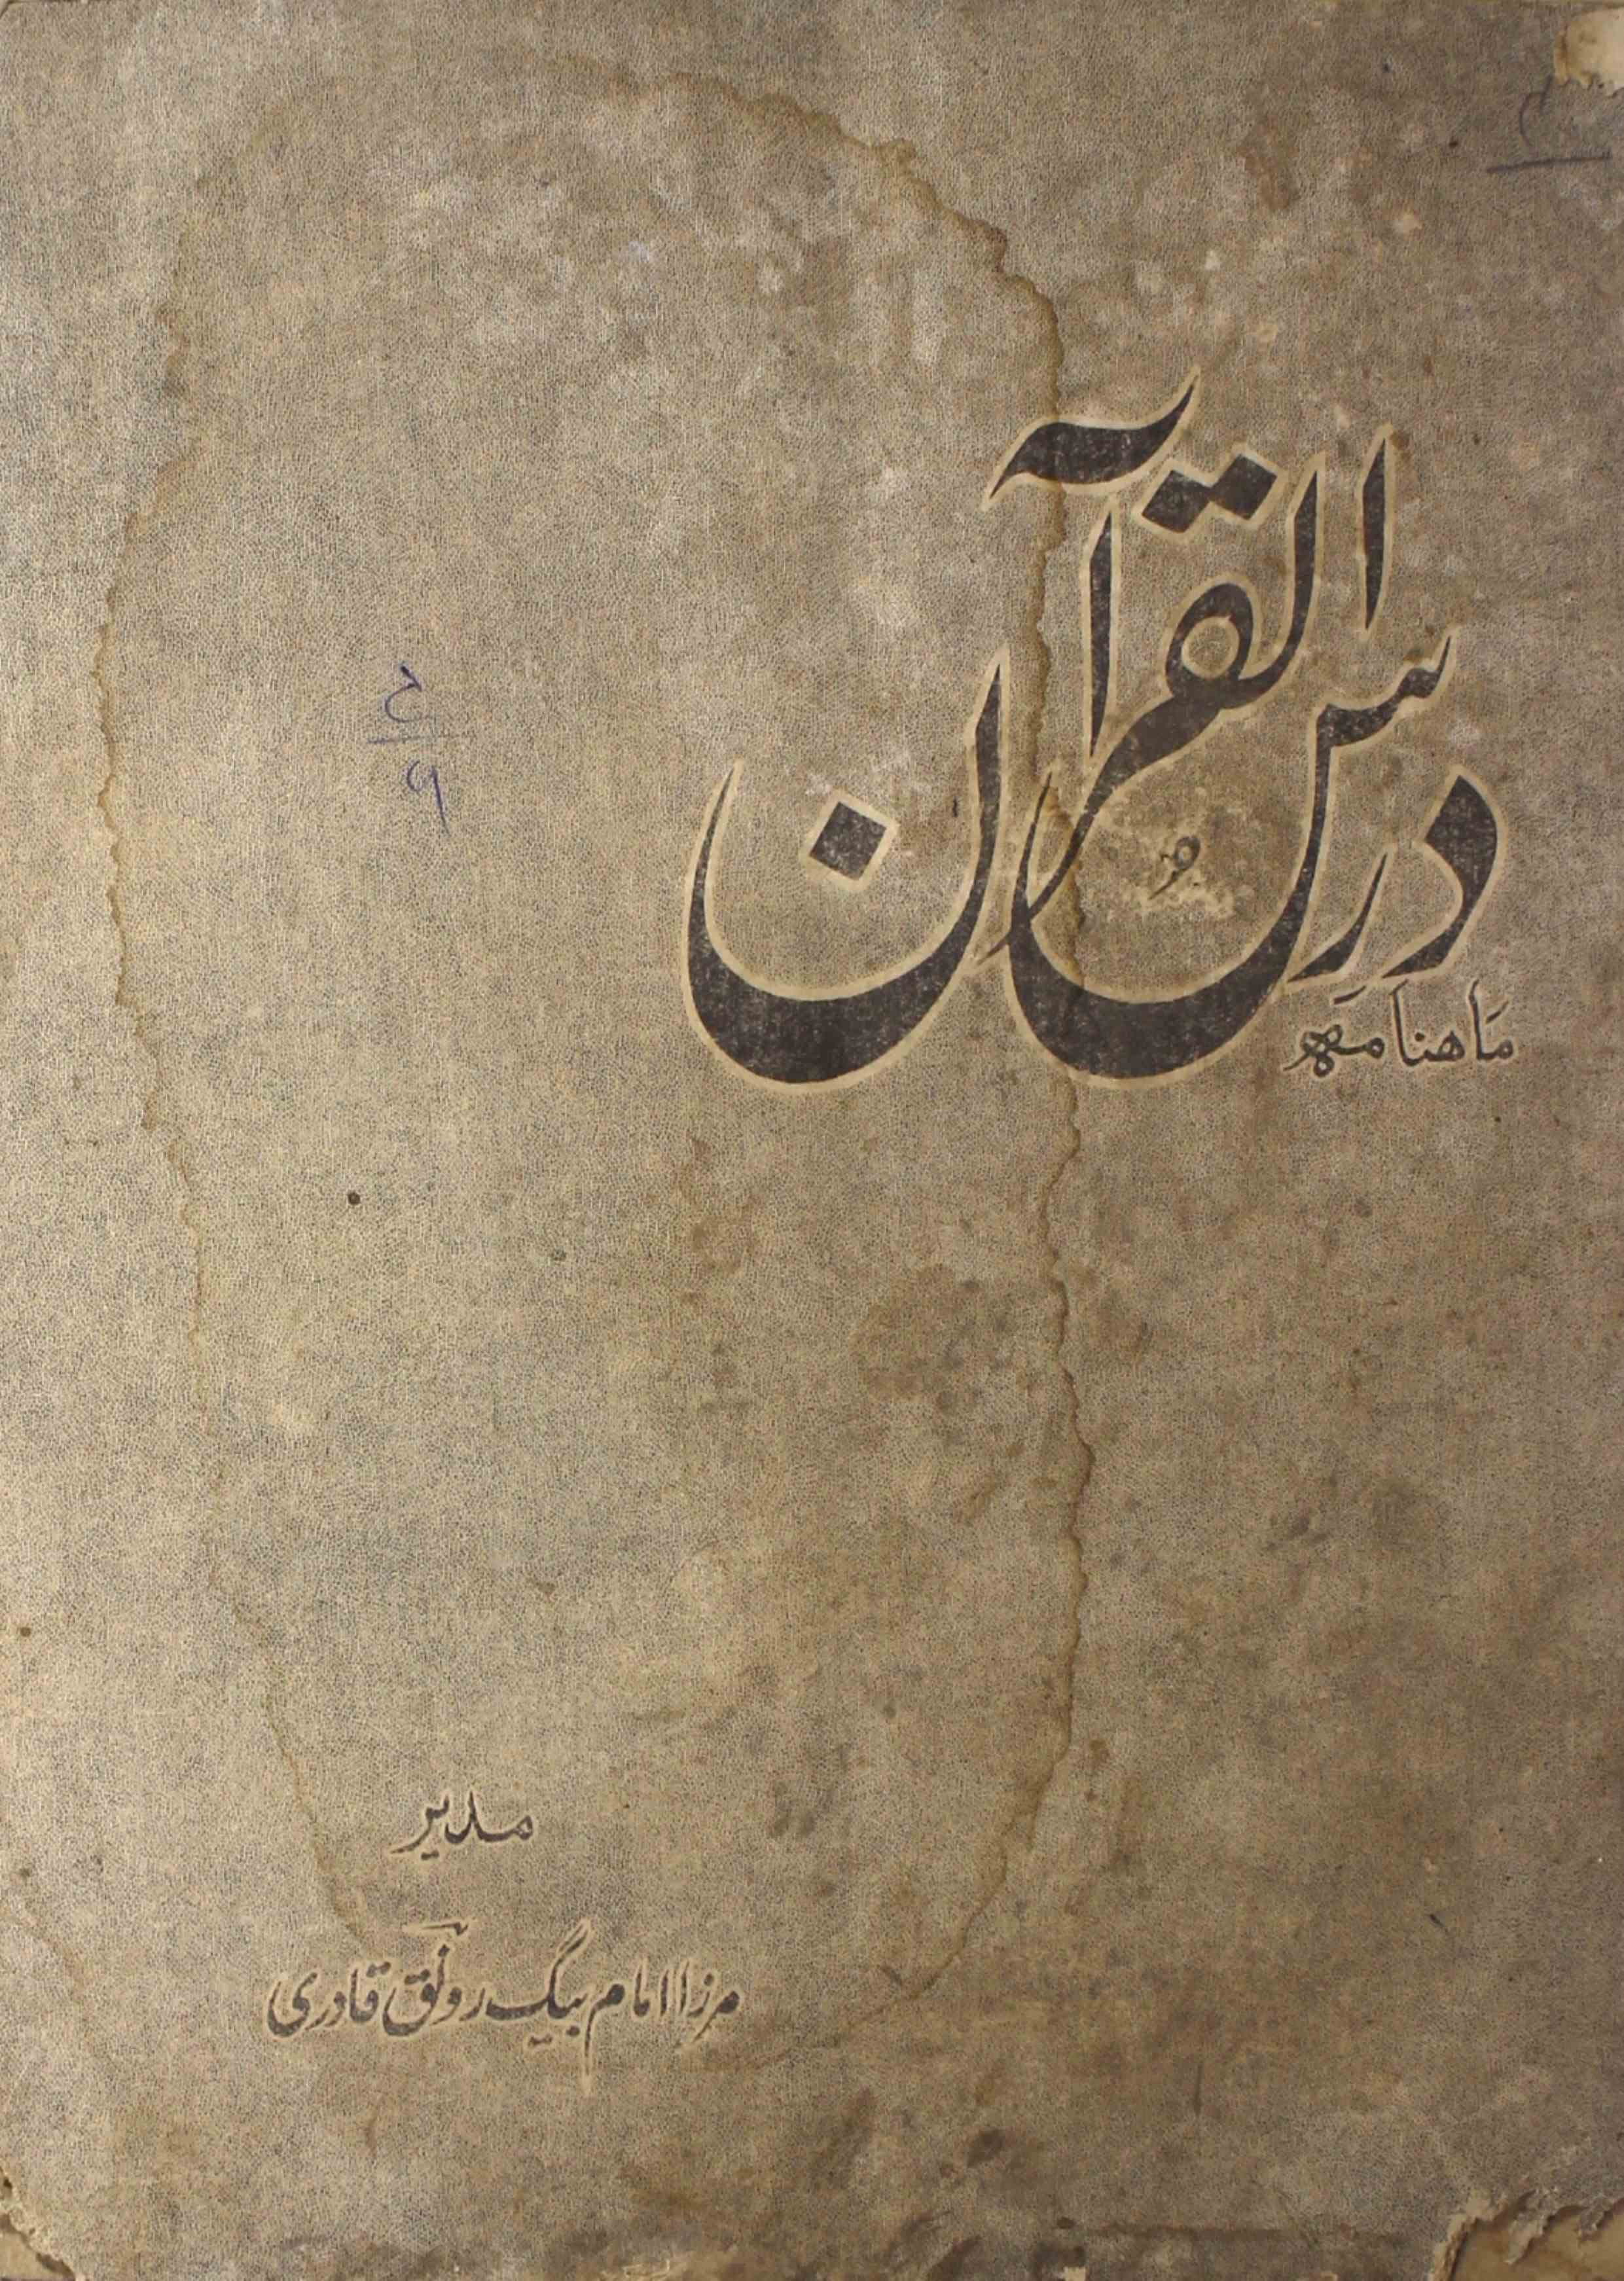 درس القرآن
ماهنامہ
ح
۹
مدیر
مرزا امام بیگ رونق قادری